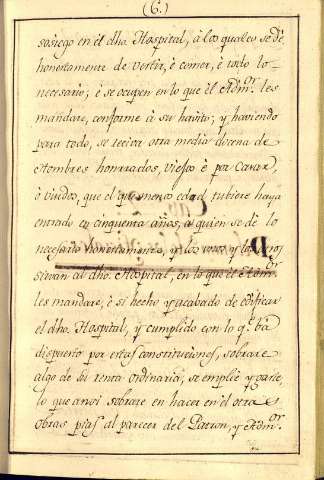 (6.)
sosiego en el dho. Hospital, à los quales se dè
honestamente de vestir, è comer, è todo lo
necesario; è se ocupen en lo que el Adm.or les
mandare, conforme à su havito; y haviendo
para todo, se reciva otra media docena de
Hombres honrrados, viejos è por Casar,
ò viudos, que el que menos edad tubiere haya
entrado en cinquenta años, a quien se dè lo
necesario honestamente, y los unos y los otros
sirvan al dho. Hospital, en lo que el Adm.or
les mandare, è si hecho y acabado de edificar
el dho. Hospital, y cumplido con lo q.e ba
dispuesto por estas constituciones, sobrare
algo de su renta ordinaria; se emplèe y gaste,
lo que ansi sobrare en hacer en èl otras
obras pias al parecer del Patron, y Adm.or